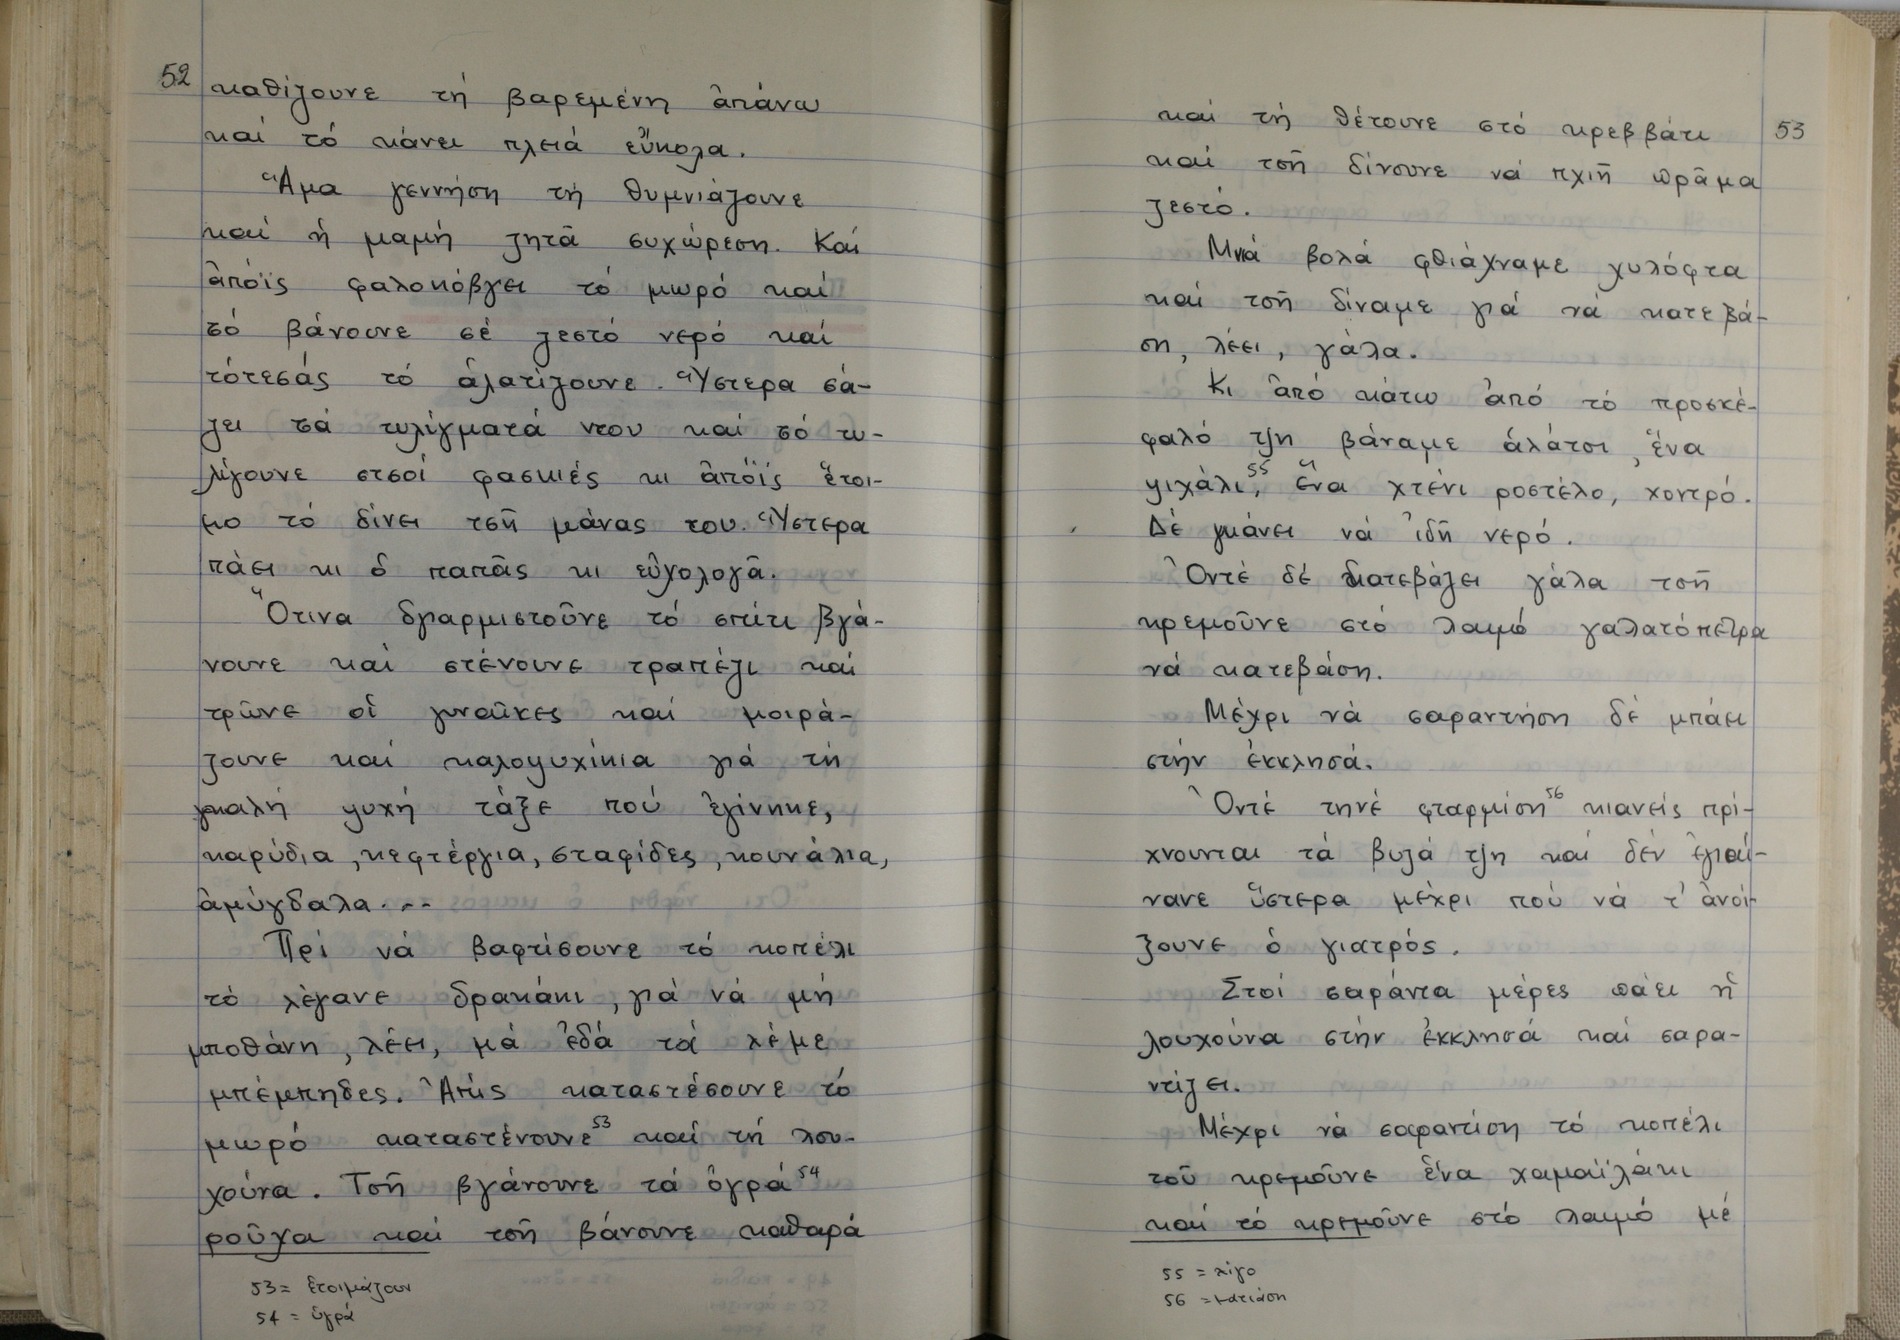 52
καθίζουνε τή βαρεμένη ἀπάνω
καί τό κάνει πλειά εὔκολα.
Ἅμα γεννήση τή θυμνιάζουνε
καί ἡ μαμή ζητᾶ συχώρεση. Καί
ἀπόϊς φαλοκόβγει τό μωρό καί
τό βάνουνε σέ ζεστό νερό καί
τότεσάς τό ἁλατίζουνε. Ὕστερα σά-
ζει τά τυλίγματά ντου καί τό τυ-
λίγουνε στσοί φασκιές κι ἀπόϊς ἕτοι-
μο τό δίνει τσῆ μάνας του. Ὕστερα
πάει κι ὁ παπᾶς κι εὐχολογᾶ.
Ὅτινα δγιαρμιστοῦνε τό σπίτι βγά-
νουνε καί στένουνε τραπέζι καί
τρῶνε οἱ γυναῖκες καί μοιρά-
ζουνε καί καλοψυχίκια γιά τή
γκαλή ψυχή τάξε πού ἐγίνηκε,
καρύδια, κεφτέργια, σταφίδες, κουνάλια,
ἀμύγδαλα...
Πρί νά βαφτίσουνε τό κοπέλι
τό λέγανε δρακάκι, γιά νά μή
μποθάνη, λέει, μά ἐδά τά λέμε
μπέμπηδες. Ἀπής καταστέσουνε τό
μωρό καταστένουνε53 καί τή λου-
χούνα. Τσῆ βγάνουνε τά ὀγρά54
ροῦχα καί τσῆ βάνουνε καθαρά
53 = ἑτοιμάζουν
54 = ὑγρά
53
καί τή θέτουνε στό κρεββάτι
καί τσῆ δίνουνε νά πχιῆ πρᾶμα
ζεστό.
Μνιά βολά φθιάχναμε χυλόφτα
καί τσῆ δίναμε γιά νά κατεβά-
ση, λέει, γάλα.
Κι ἀπό κάτω ἀπό τό προσκέ-
φαλό τζη βάναμε ἁλάτσι, ἕνα
ψιχάλι55, ἕνα χτένι ροστέλο, χοντρό.
Δέ γκάνει νά ἰδῆ νερό.
Ὀντέ δέ κατεβάζει γάλα τσῆ
κρεμοῦνε στό λαιμό γαλατόπετρα
νά κατεβάση.
Μέχρι νά σαραντήση δέ μπάει
στήν ἐκκλησά.
Ὀντέ τηνέ φταρμίση56 κιανείς πρί-
χνουνται τά βυζά τζη καί δέν ἐγιαί-
νανε ὕστερα μέχρι πού νά τ' ἀνοί-
ξουνε ὁ γιατρός.
Στοί σαράντα μέρες πάει ἡ
λουχούνα στήν ἐκκλησά καί σαρα-
ντίζει.
Μέχρι νά σαραντίση τό κοπέλι
τοῦ κρεμοῦνε ἕνα χαμαϊλάκι
καί τό κρεμοῦνε στό λαιμό μέ
55 = λίγο
56 = ματιάση